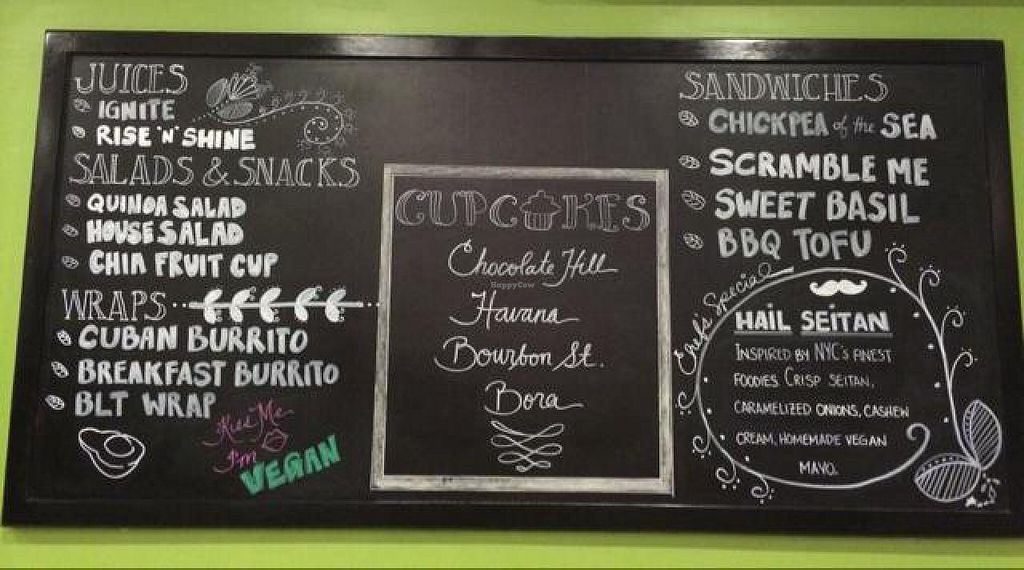 JUICES
IGNITE
RISE 'N' SHINE
SALADS & SNACKS
QUINOA SALAD
HOUSE SALAD
CHIA FRUIT CUP
WRAPS
CUBAN BURRITO
BREAKFAST BURRITO
BLT WRAP
Kiss Me
I'm
VEGAN
CUPCAKES
Chocolate Hill
HappyCow
Havana
Bourbon St.
Bora
SANDWICHES
CHICKPEA of the SEA
SCRAMBLE ME
SWEET BASIL
BBQ TOFU
Chef's Special
HAIL SEITAN
INSPIRED BY NYC's FINEST
FOODIES. CRISP SEITAN,
CARAMELIZED ONIONS, CASHEW
CREAM, HOMEMADE VEGAN
MAYO.